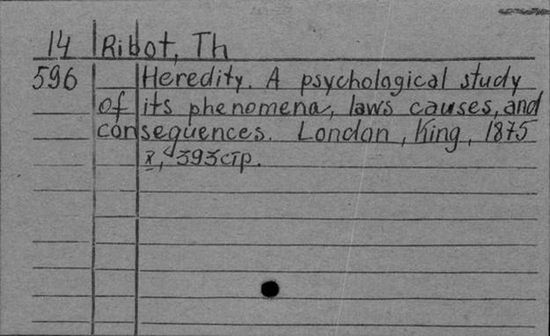 14 Ribot, Th
596 Heredity. A psychological study
of its phenomena, laws causes, and
consequences. London, King, 1875
x, 393 стр.